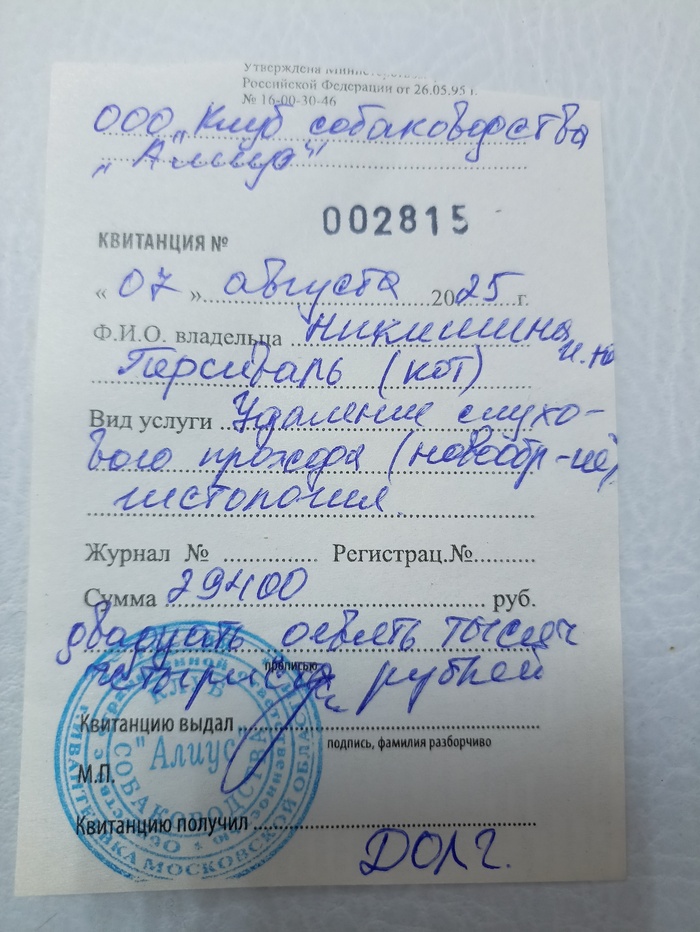 Утверждена Министерством
Российской Федерации от 26.05.95 г.
№ 16-00-30-46
ООО „Клуб собаководства
„Алиус“
002815
КВИТАНЦИЯ №
« 07 » августа 2025 г.
Ф.И.О. владельца Никишина
Персиваль (кот)
Вид услуги Удаление слухо-
вого прохода (новообр-ие)
гистология
Журнал № Регистрац.№
Сумма 29400 руб.
двадцать девять тысяч
прописью
четыреста рублей
Квитанцию выдал
подпись, фамилия разборчиво
М.П.
Квитанцию получил
ДОЛГ.
КЛУБ
"Алиус"
СОБАКОВОДСТВА
ИВАНТЕЕВКА МОСКОВСКОЙ ОБЛ